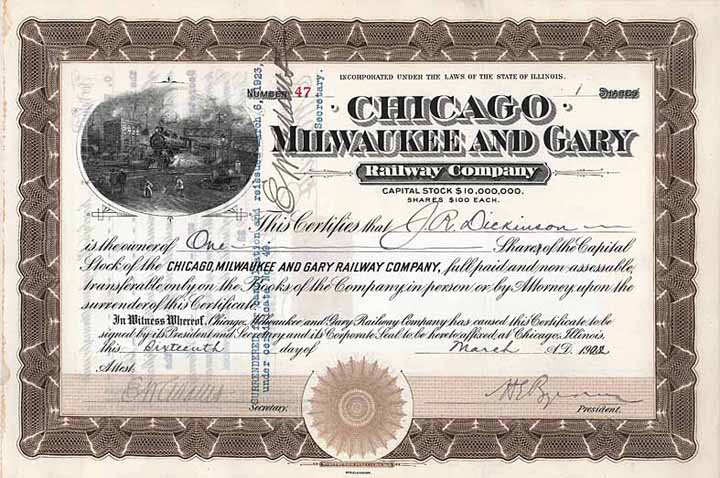 INCORPORATED UNDER THE LAWS OF THE STATE OF ILLINOIS.
NUMBER 47
1 SHARES
CHICAGO
MILWAUKEE AND GARY
Railway Company
CAPITAL STOCK $10,000,000.
SHARES $100 EACH.
This Certifies that J. R. Dickinson
is the owner of One Shares of the Capital
Stock of the CHICAGO, MILWAUKEE AND GARY RAILWAY COMPANY, full paid and non assessable,
transferable only on the Books of the Company, in person, or by Attorney, upon the
surrender of this Certificate
In Witness Whereof, Chicago, Milwaukee and Gary Railway Company has caused this Certificate to be
signed by its President and Secretary and its Corporate Seal to be hereto affixed, at Chicago, Illinois,
this Sixteenth day of March A.D. 1922
Attest.
Secretary.
President.
SURRENDERED for cancellation and reissue March 6, 1923,
under certificate No. 49.
Secretary.